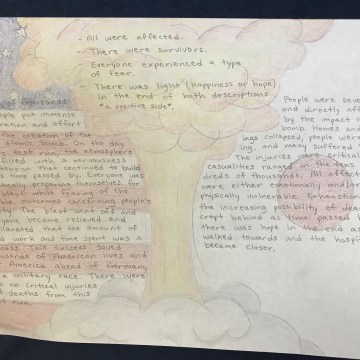 - All were affected.
- There were survivors.
- Everyone experienced a type
of fear.
- There was light (happiness or hope)
in the end of both descriptions
"a positive side".
of thousands
people put immense
ration and effort
the creation of the
atomic bomb. On the day
test run, the atmosphere
filled with a nervousness
tension that continued to build
time passed by. Everyone was
ically preparing themselves for
while fearing of
able outcomes concerning people's
ty. The blast went off and
became relieved and
clarated that the amount of
work and time spent was a
cess. This success saved
ousands of American lives and
America ahead of Germany
a military race. There were
no critical injuries
deaths from this
run.
People were seve
and directly affec
by the impact o
bomb. Homes and
ings collapsed, people were
ing, and many suffered
The injuries were critical
casualties ranged
dreds of thousands. All affect
were either emotionally and/or
physically vulnerable. Exhaustion
the increasing possibility of dea
crept behind as time passed
there was hope in the end as
walked towards and the hospit
became closer.